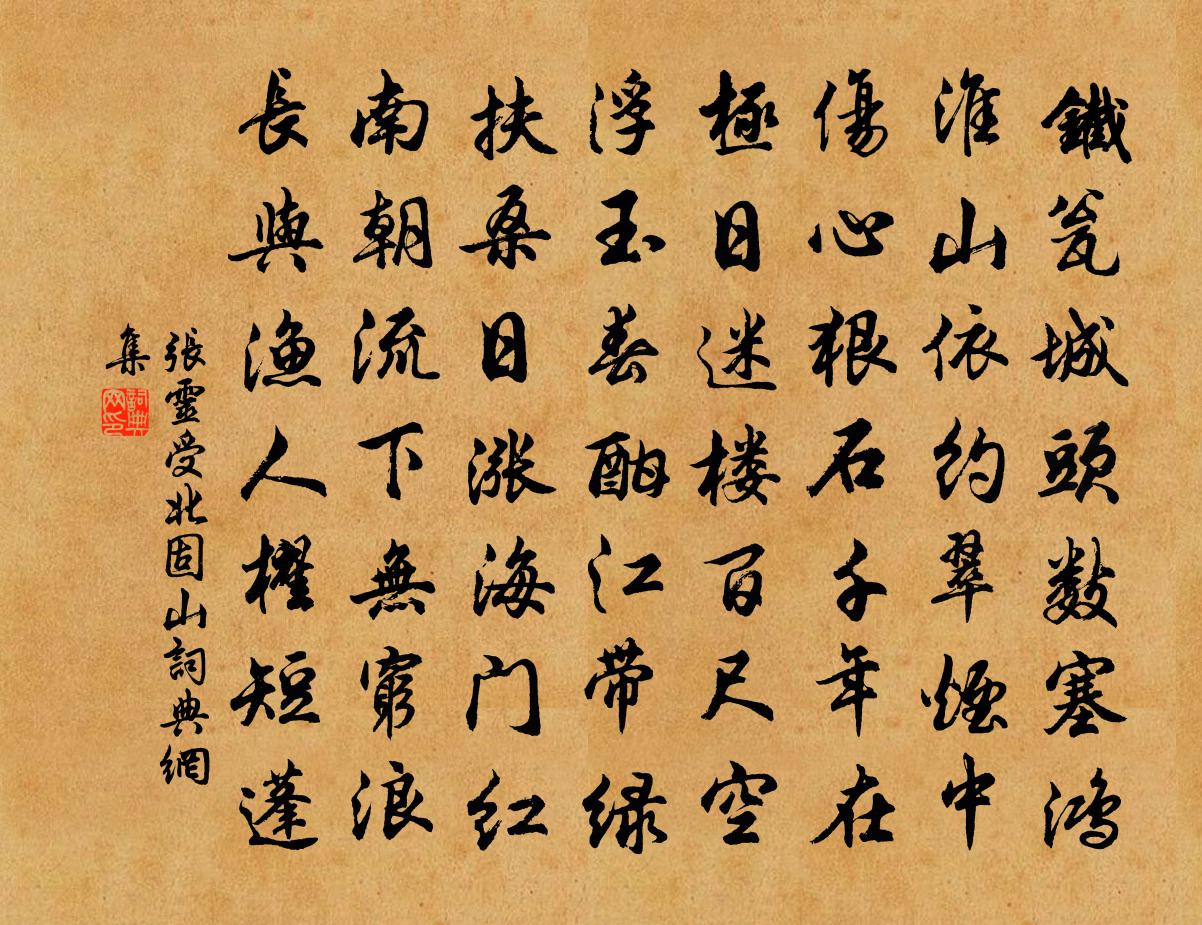 鐵瓮城頭數塞鴻
淮山依約翠煙中
傷心狠石千年在
極日迷楼百尺空
浮玉春酣江带緑
扶桑日漲海门紅
南朝流下無窮浪
長與漁人櫂短蓬
張靈受北固山詞典網
集
詞典网印